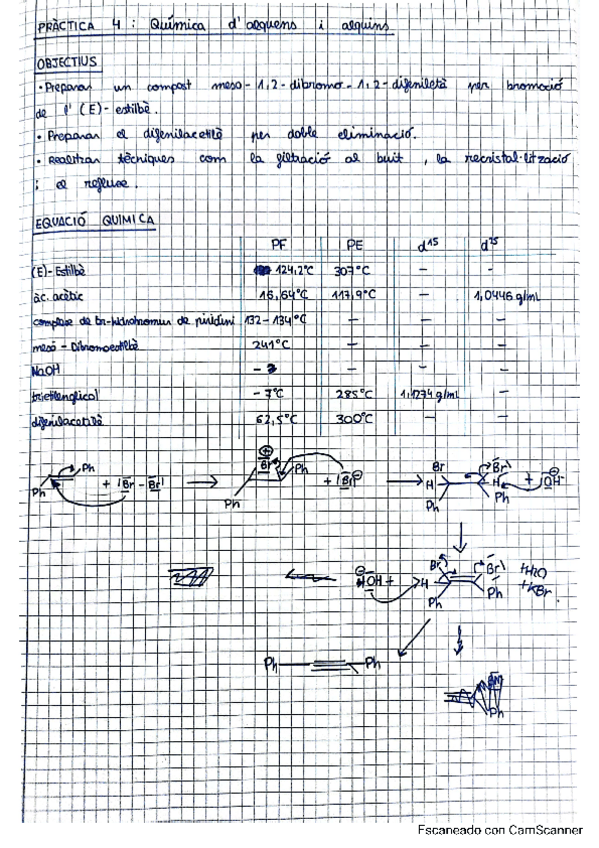 PRÀCTICA 4: Química d'alquens i alquins
OBJECTIUS
· Preparar un compost meso-1,2-dibromo-1,2-difeniletà per bromació
de l'(E)-estilbè.
· Preparar el difenilacetilè per doble eliminació.
· Realitzar tècniques com la filtració al buit, la recristal·lització
i el reflux.
EQUACIÓ QUIMICA
PF PE d15 d25
(E)-Estilbè 124,2°C 307°C - -
àc. acètic 16,64°C 117,9°C - 1,0446 g/mL
complexe de tri-hidrobromur de piridini 132-134°C - - -
mesó-Dibromoestilbè 241°C - - -
NaOH - - - -
trietilenglicol -7°C 285°C 1,1274 g/mL -
difenilacetilè 62,5°C 300°C - -
Ph Ph + |Br-Br| Br Ph Ph + |Br| Br H Ph Br H Ph + |OH
HOH + H Br Ph Br Ph + H2O
+ KBr
Ph Ph
Ph
Escaneado con CamScanner